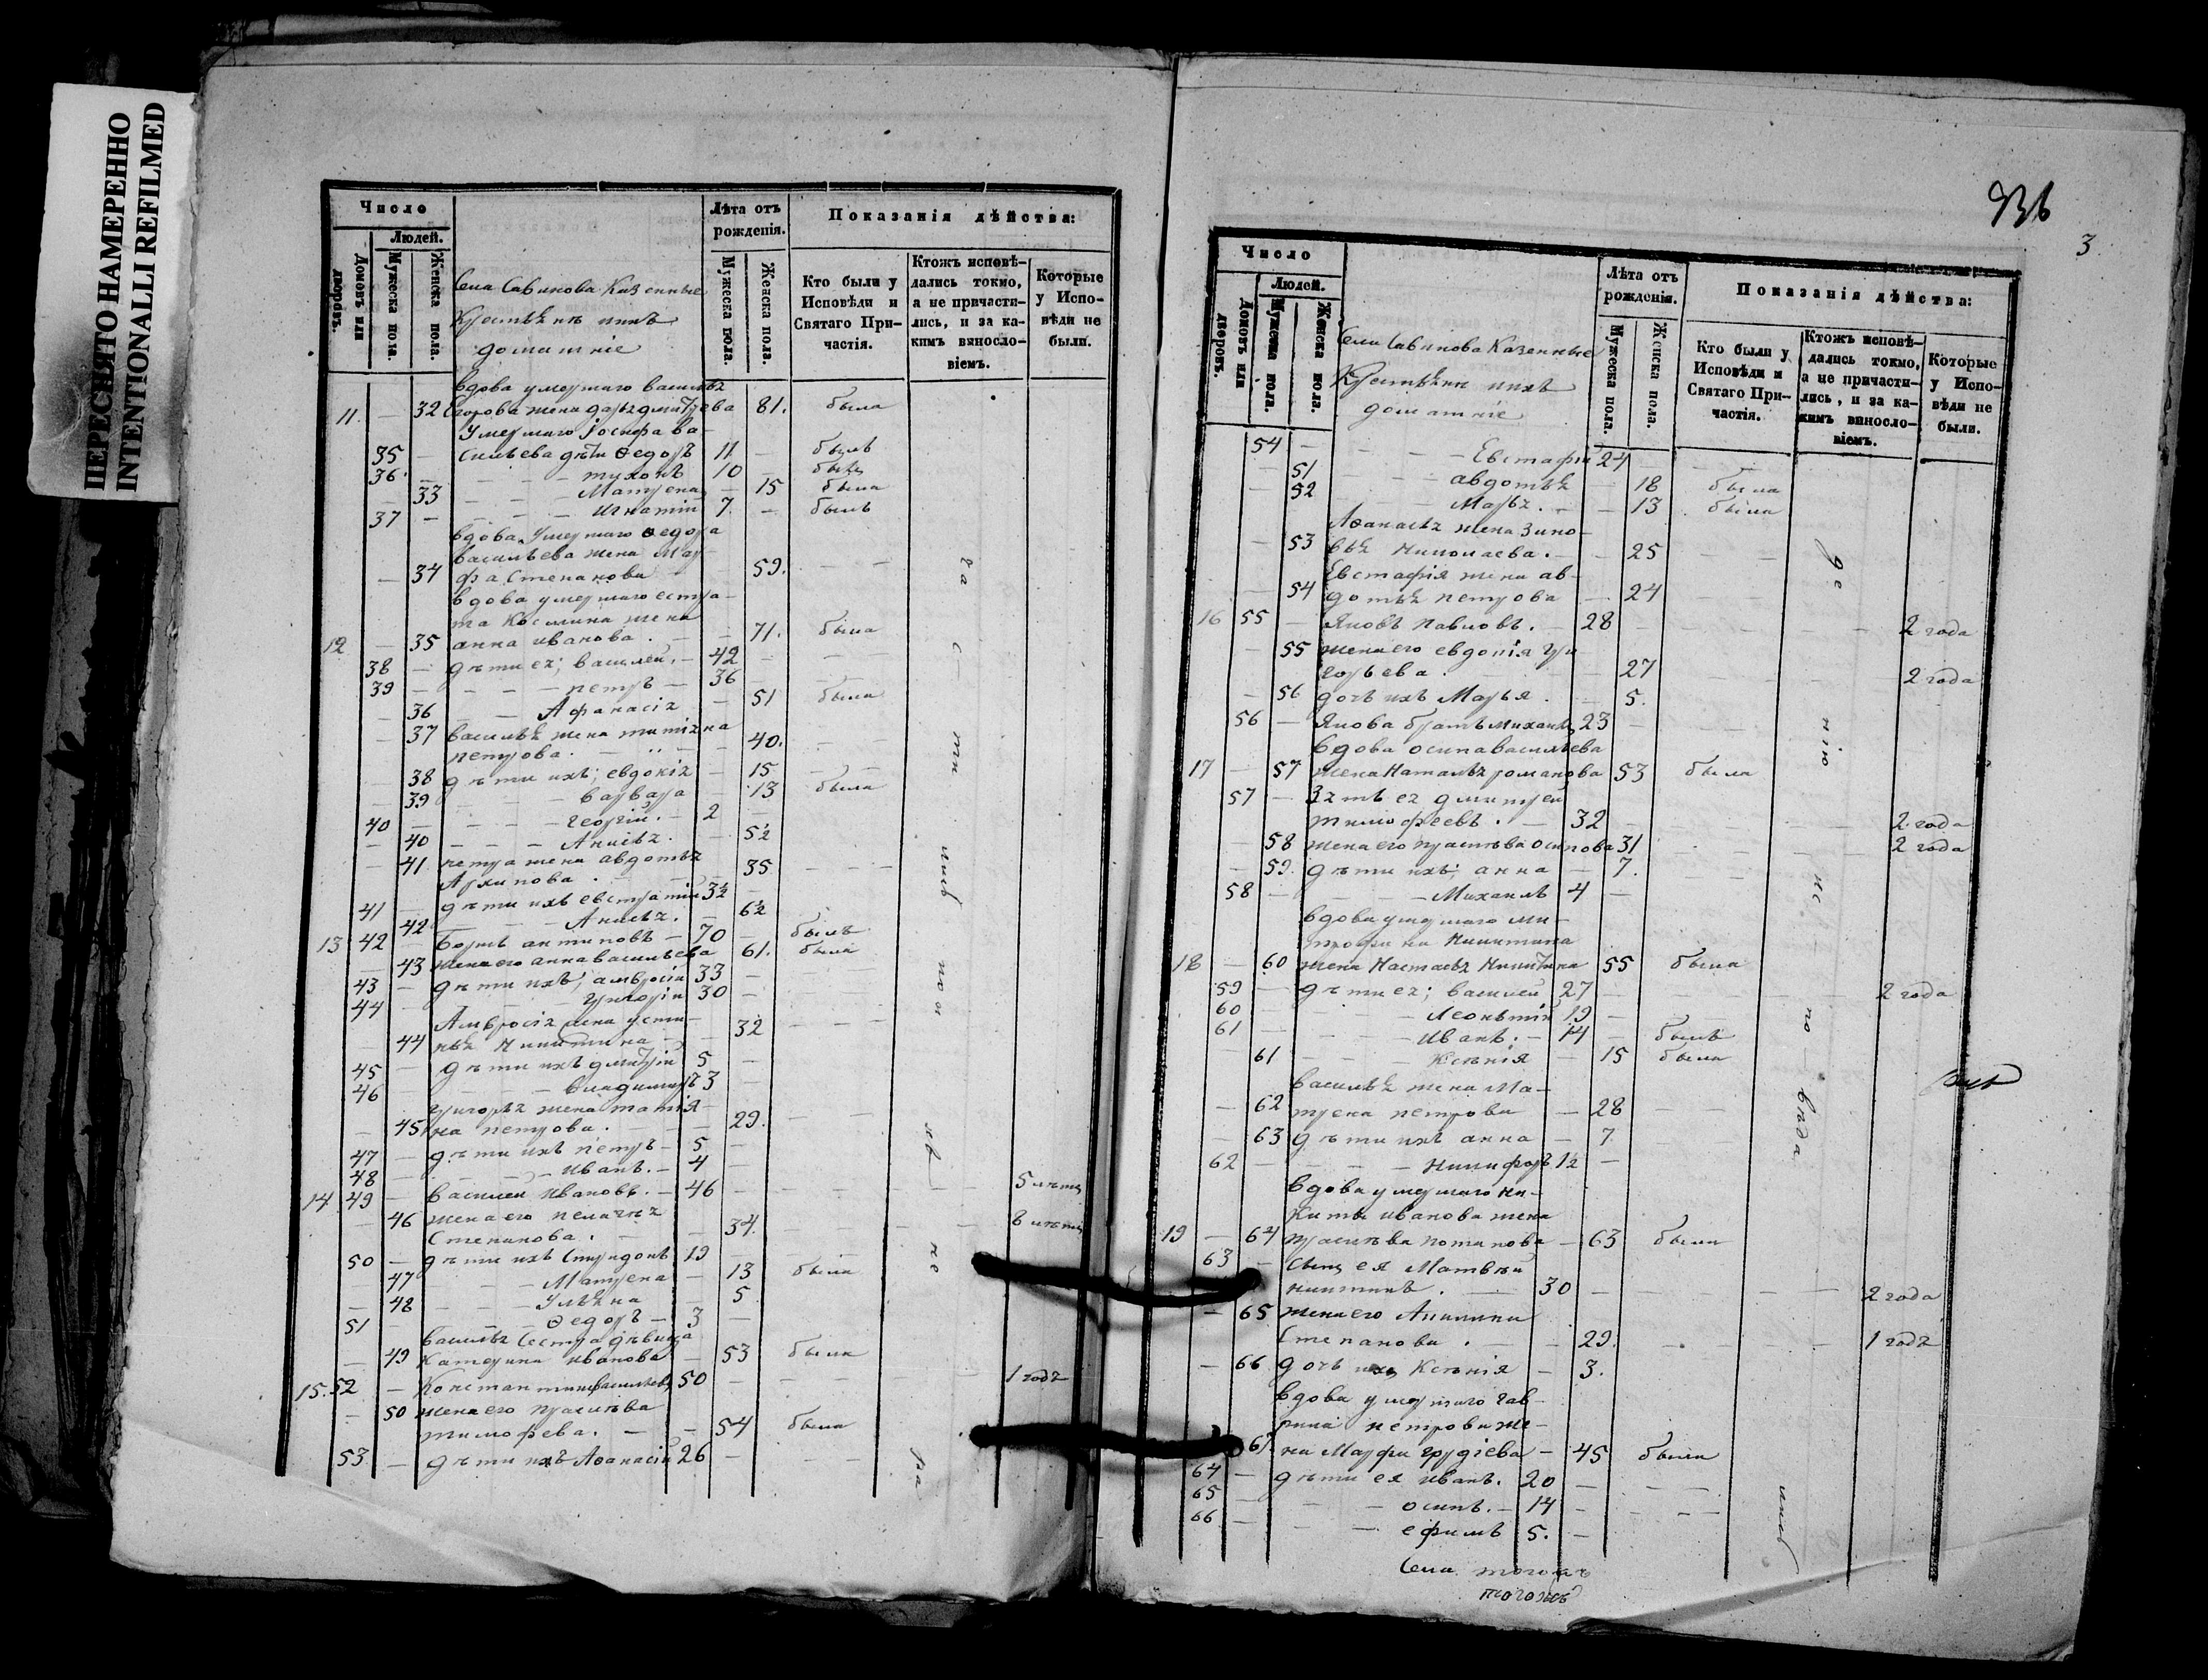 ПЕРЕСНЯТО НАМЕРЕННО
INTENTIONALLI REFILMED
Число
Людей.
Домовъ или дворовъ.
Мужеска пола.
Женска пола.
Села Савинова Казенные
Крестьяне ихъ
домашніе
Лѣта отъ рожденія.
Мужеска пола.
Женска пола.
Показанія дѣйства:
Кто были у Исповѣди и Святаго Причастія.
Ктожъ исповѣдались токмо, а не причастились, и за какимъ винословіемъ.
Которые у Исповѣди не были.
вдова умершаго василья
11. — 32 Егорова жена дарья дмитрева 81. была
Умершаго Іосифа ва-
35 — сильева дѣти Ѳедоръ 11 — былъ
36 — тихонъ 10 — былъ
33 — Матрена — 15 была
37 — Игнатій 7. — былъ
вдова Умершаго Ѳедора
васильева жена Мар-
— 34 фа Степанова 59. — —
вдова умершаго естра-
та Космина жена
12 — 35 анна иванова. — 71. была
38 — дѣти ея; василей. — 42 —
39 — — петръ — 36 —
36 — Афанасія — 51 была
— 37 василья жена татіяна
петрова. — 40. —
38 дѣти ихъ; евдокія — 15 — —
39 — варвара — 13 была
40 — георгій. — 2 —
— 40 — Анисья. — 5½
— 41 петра жена авдотья
Архипова. — 35 — —
41 — дѣти ихъ евстратій 3½ —
42 — Анисья. — 6½
13 42 — борисъ антиповъ — 70 — былъ
— 43 жена его анна васильева 61. была
43 — дѣти ихъ; амвросій 33 —
44 — Григорій 30 —
Амвросія жена усти-
— 44 нья Никитина — 32 — —
45 — дѣти ихъ дмитрій 5 —
46 — — Владимиръ 3 —
Григорья жена татія-
— 45 на петрова. — 29. — —
47 — дѣти ихъ петръ — 5 —
48 — — иванъ. — 4 —
14 49 — василей Ивановъ. — 46 — — 5 лѣтъ
— 46 жена его пелагея
Степанова. — 34. — 8 лѣтъ
50 — дѣти ихъ Спиридонъ 19 —
47 — Матрена — 13 была
— 48 — Ульяна — 5
51 — — Ѳедоръ — 3 —
василья Сестра дѣвица
— 49 Катерина иванова — 53 была
15. 52 — Константинъ васильевъ 50 — — 1 годъ
— 50 жена его прасковья
тимофева. — 54 была
53 — дѣти ихъ Аѳанасій 26 — — —
3
Число
Людей.
Домовъ или дворовъ.
Мужеска пола.
Женска пола.
Села Савинова Казенные
Крестьяне ихъ
домашніе
Лѣта отъ рожденія.
Мужеска пола.
Женска пола.
Показанія дѣйства:
Кто были у Исповѣди и Святаго Причастія.
Ктожъ исповѣдались токмо, а не причастились, и за какимъ винословіемъ.
Которые у Исповѣди не были.
54 — — — Евстафій 24 — — —
51 — авдотья — 18 была
52 — Марья. — 13 была
Аѳанасья жена Зино-
— 53 вья Николаева. — 25 — —
Евстафія жена ав-
— 54 дотья петрова — 24 — —
16 55 — Яковъ Павловъ. — 28 — — 2 года
— 55 жена его евдокія Гри-
горьева. 27 — — 2 года
— 56 дочь ихъ Марья. — 5.
56 — Якова братъ михаилъ 23 —
вдова осипа васильева
17 — 57 жена Наталья романова 53 была
57 — Зять ея дмитрей
тимофеевъ. — 32 — — 2 года
— 58 жена его прасковья осипова 31 — 2 года
— 59. дѣти ихъ; анна — 7.
58 — — Михаилъ 4 —
вдова умершаго ми-
трофана Никитина
18 — 60 жена Настасья Никитина 55 была
59 — дѣти ея; василей 27 — — 2 года
60 — — Леонтій 19 —
61 — — Иванъ. — 14 — былъ
— 61 — Ксенія — 15 была
василья жена Ма-
— 62 трена петрова — 28 — —
— 63 дѣти ихъ анна — 7.
62 — — Никифоръ 1½ —
вдова умершаго Ни-
киты иванова жена
19 — 64 прасковья потапова — 63 была
63 — Сынъ ея Матвѣй
никитинъ. — 30 — — 2 года
— 65 жена его Акилина
Степанова. — 29. — — 1 годъ
— 66 дочь ихъ Ксенія — 3.
вдова умершаго гав-
рила петрова же-
67. на Марфа — 45 была
64 — дѣти ея иванъ. 20 — — —
65 — — осипъ. — 14 — — —
66 — — ефимъ 5. —
Села тогожъ
тогожъ